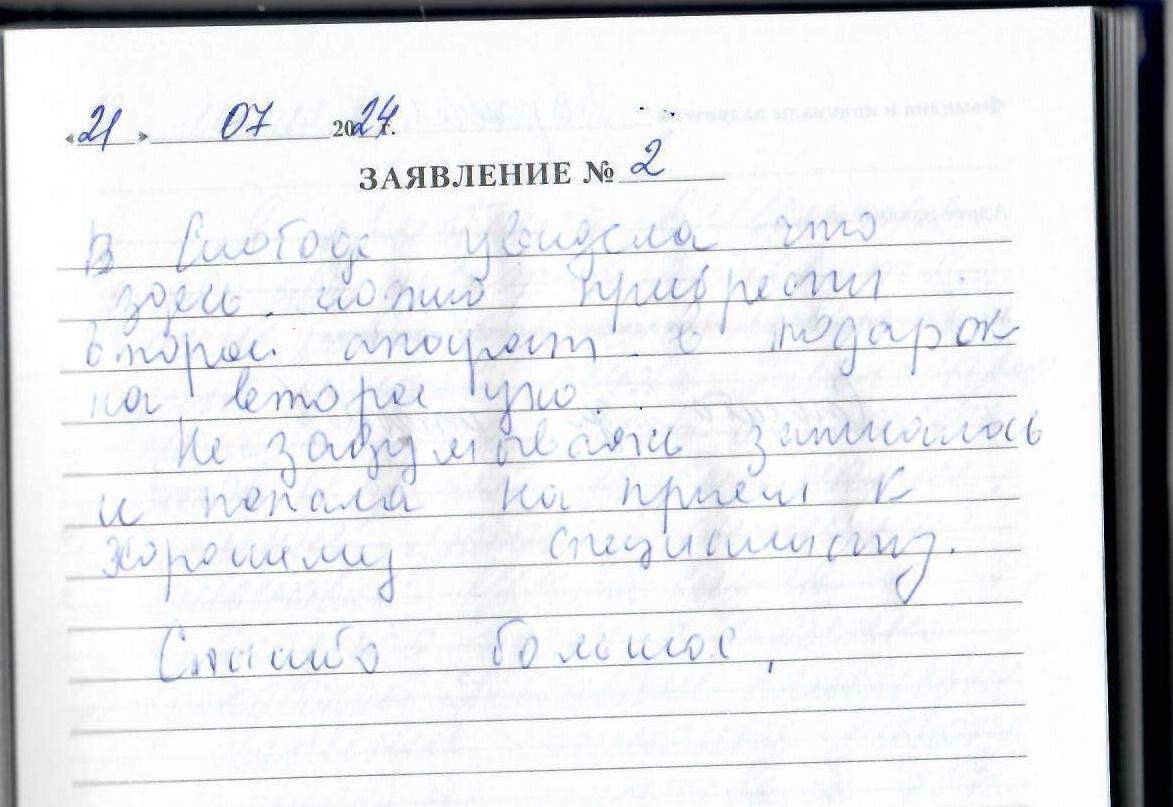 «21» 07 2024 г.
ЗАЯВЛЕНИЕ № 2
В Слободе увидела что
здесь можно приобрести
второй аппарат в подарок
на второе ухо.
Не задумываясь записалась
и попала на прием к
хорошему специалисту.
Спасибо большое.